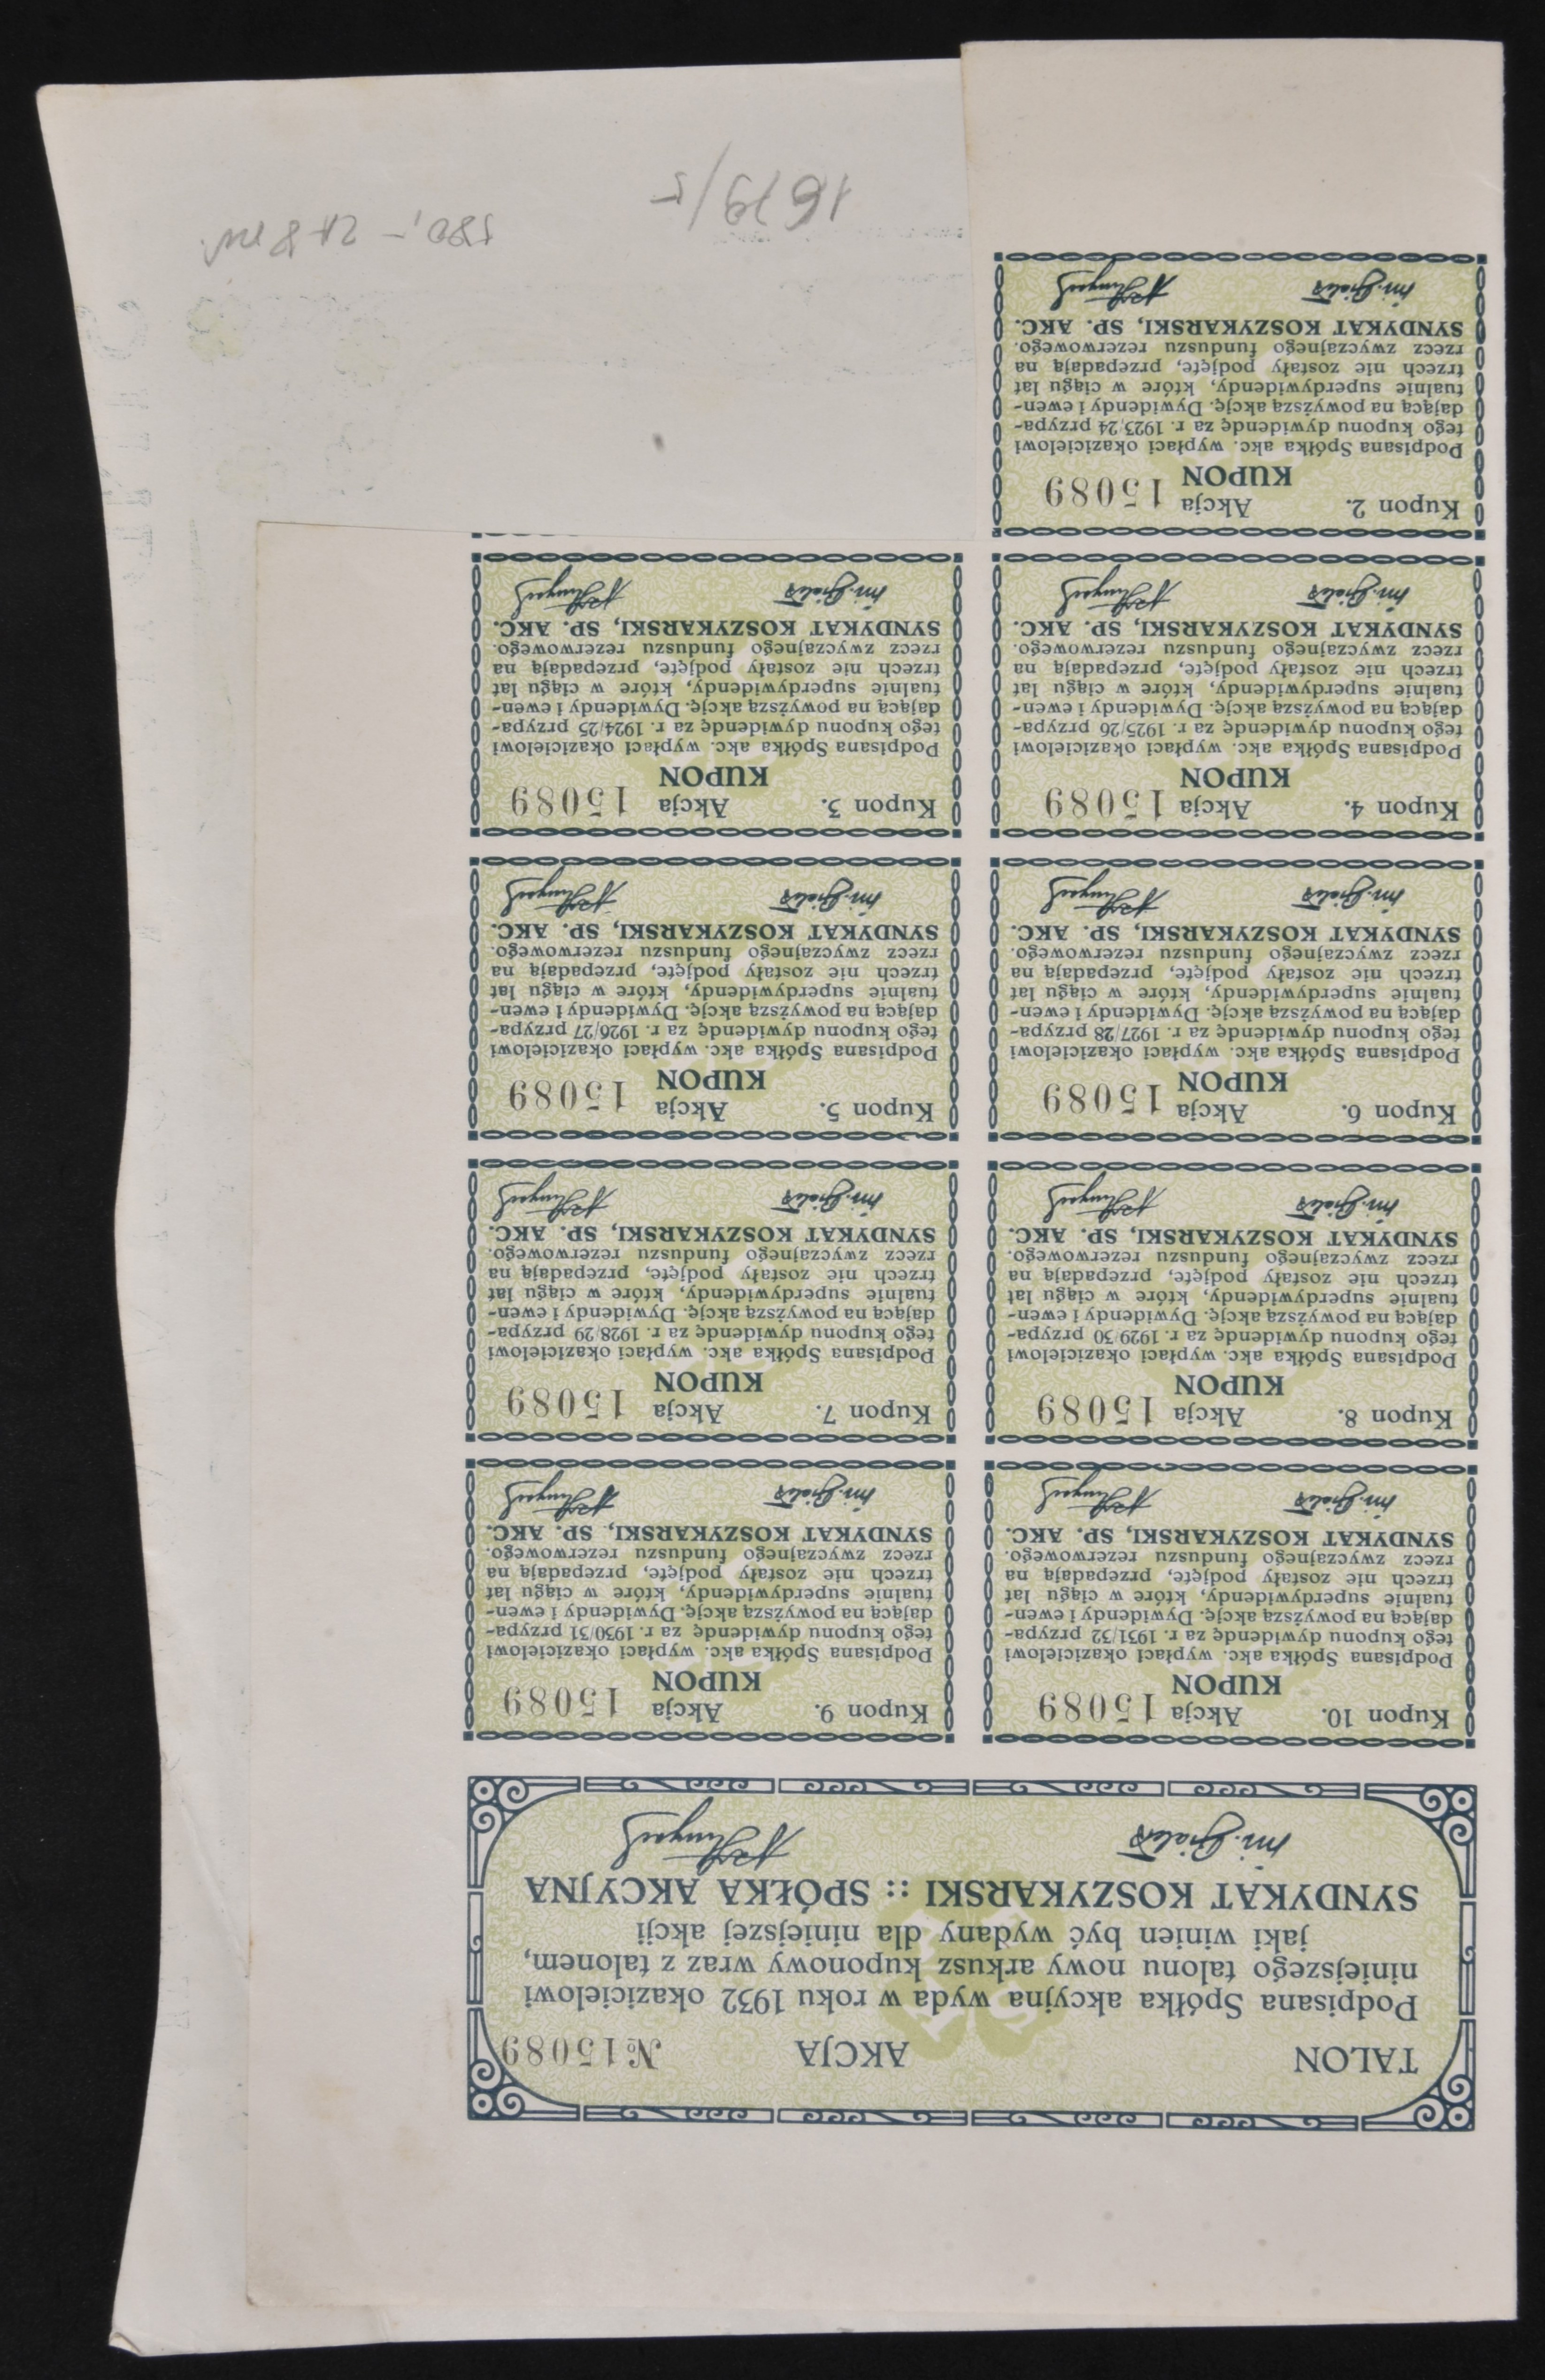 TALON AKCJA № 15089
Podpisana Spółka akcyjna wyda w roku 1932 okazicielowi
niniejszego talonu nowy arkusz kuponowy wraz z talonem,
jaki winien być wydany dla niniejszej akcji
SYNDYKAT KOSZYKARSKI :: SPÓŁKA AKCYJNA
Kupon 10. Akcja 15089
KUPON
Podpisana Spółka akc. wypłaci okazicielowi
tego kuponu dywidendę za r. 1931/32 przypa-
dającą na powyższą akcję. Dywidendy i ewen-
tualnie superdywidendy, które w ciągu lat
trzech nie zostały podjęte, przepadają na
rzecz zwyczajnego funduszu rezerwowego.
SYNDYKAT KOSZYKARSKI, SP. AKC.
Kupon 9. Akcja 15089
KUPON
Podpisana Spółka akc. wypłaci okazicielowi
tego kuponu dywidendę za r. 1930/31 przypa-
dającą na powyższą akcję. Dywidendy i ewen-
tualnie superdywidendy, które w ciągu lat
trzech nie zostały podjęte, przepadają na
rzecz zwyczajnego funduszu rezerwowego.
SYNDYKAT KOSZYKARSKI, SP. AKC.
Kupon 8. Akcja 15089
KUPON
Podpisana Spółka akc. wypłaci okazicielowi
tego kuponu dywidendę za r. 1929/30 przypa-
dającą na powyższą akcję. Dywidendy i ewen-
tualnie superdywidendy, które w ciągu lat
trzech nie zostały podjęte, przepadają na
rzecz zwyczajnego funduszu rezerwowego.
SYNDYKAT KOSZYKARSKI, SP. AKC.
Kupon 7. Akcja 15089
KUPON
Podpisana Spółka akc. wypłaci okazicielowi
tego kuponu dywidendę za r. 1928/29 przypa-
dającą na powyższą akcję. Dywidendy i ewen-
tualnie superdywidendy, które w ciągu lat
trzech nie zostały podjęte, przepadają na
rzecz zwyczajnego funduszu rezerwowego.
SYNDYKAT KOSZYKARSKI, SP. AKC.
Kupon 6. Akcja 15089
KUPON
Podpisana Spółka akc. wypłaci okazicielowi
tego kuponu dywidendę za r. 1927/28 przypa-
dającą na powyższą akcję. Dywidendy i ewen-
tualnie superdywidendy, które w ciągu lat
trzech nie zostały podjęte, przepadają na
rzecz zwyczajnego funduszu rezerwowego.
SYNDYKAT KOSZYKARSKI, SP. AKC.
Kupon 5. Akcja 15089
KUPON
Podpisana Spółka akc. wypłaci okazicielowi
tego kuponu dywidendę za r. 1926/27 przypa-
dającą na powyższą akcję. Dywidendy i ewen-
tualnie superdywidendy, które w ciągu lat
trzech nie zostały podjęte, przepadają na
rzecz zwyczajnego funduszu rezerwowego.
SYNDYKAT KOSZYKARSKI, SP. AKC.
Kupon 4. Akcja 15089
KUPON
Podpisana Spółka akc. wypłaci okazicielowi
tego kuponu dywidendę za r. 1925/26 przypa-
dającą na powyższą akcję. Dywidendy i ewen-
tualnie superdywidendy, które w ciągu lat
trzech nie zostały podjęte, przepadają na
rzecz zwyczajnego funduszu rezerwowego.
SYNDYKAT KOSZYKARSKI, SP. AKC.
Kupon 3. Akcja 15089
KUPON
Podpisana Spółka akc. wypłaci okazicielowi
tego kuponu dywidendę za r. 1924/25 przypa-
dającą na powyższą akcję. Dywidendy i ewen-
tualnie superdywidendy, które w ciągu lat
trzech nie zostały podjęte, przepadają na
rzecz zwyczajnego funduszu rezerwowego.
SYNDYKAT KOSZYKARSKI, SP. AKC.
Kupon 2. Akcja 15089
KUPON
Podpisana Spółka akc. wypłaci okazicielowi
tego kuponu dywidendę za r. 1923/24 przypa-
dającą na powyższą akcję. Dywidendy i ewen-
tualnie superdywidendy, które w ciągu lat
trzech nie zostały podjęte, przepadają na
rzecz zwyczajnego funduszu rezerwowego.
SYNDYKAT KOSZYKARSKI, SP. AKC.
1679/5